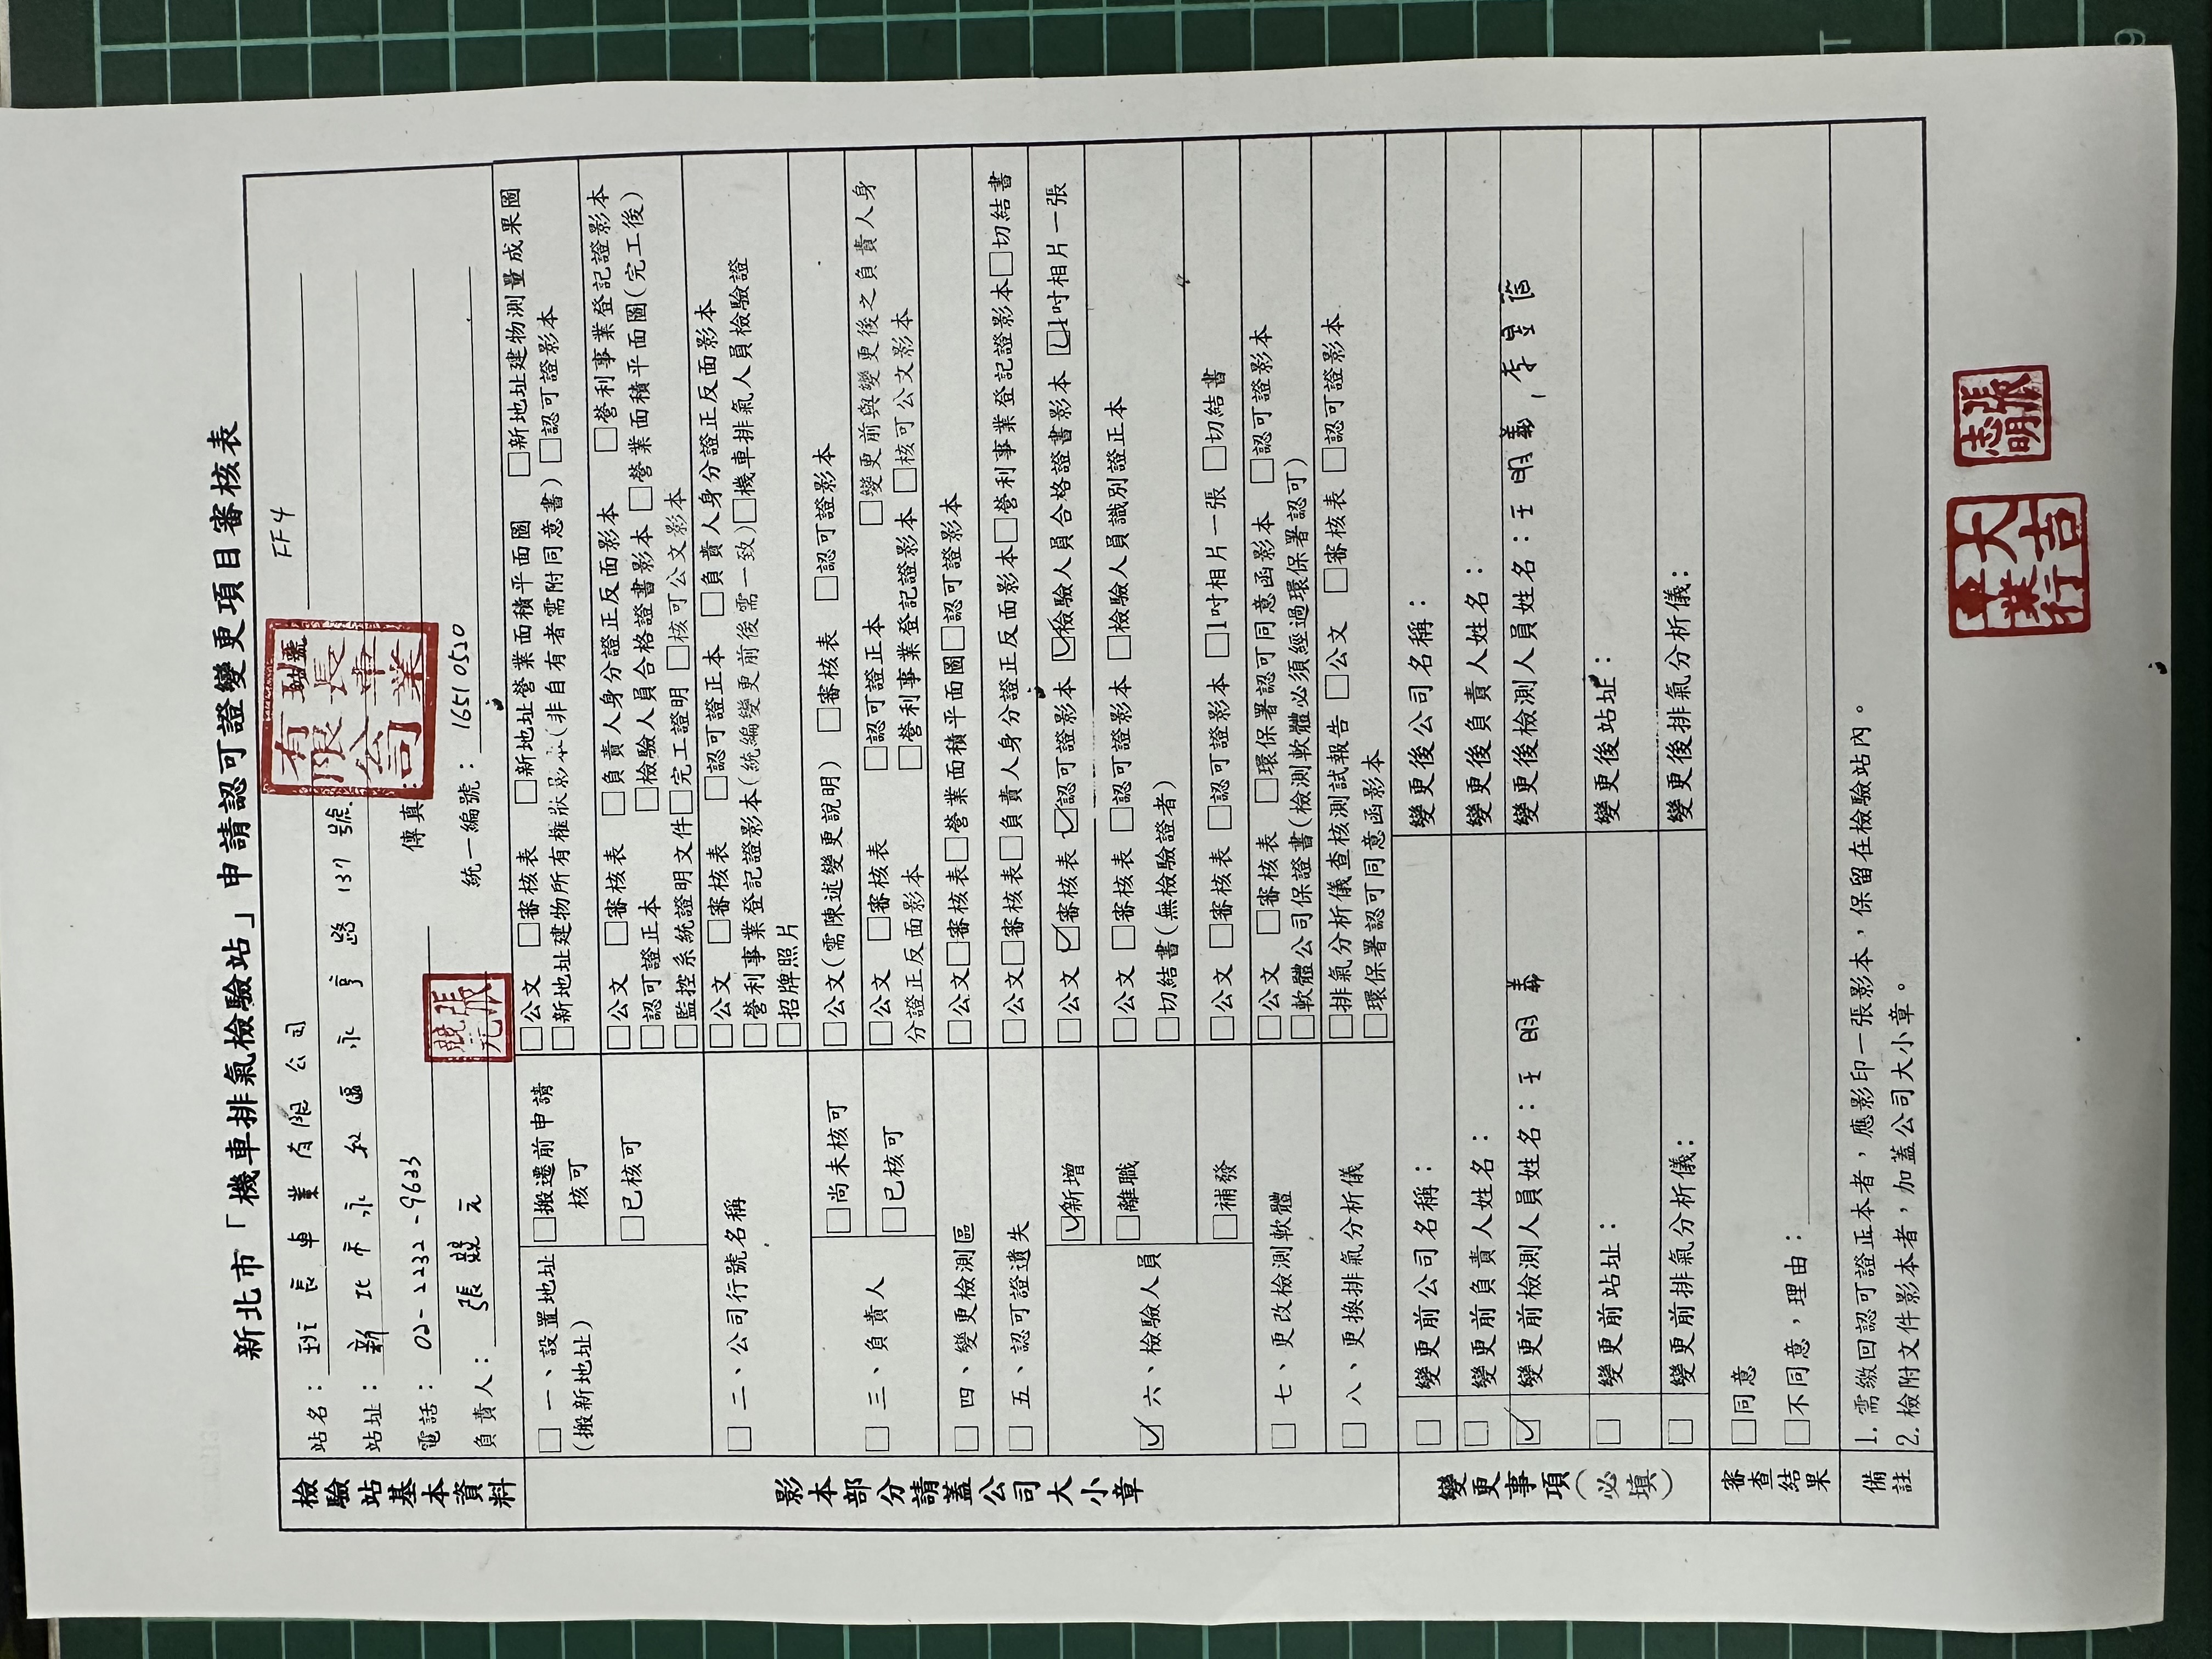 新北市「機車排氣檢驗站」申請認可證變更項目審核表
檢驗站基本資料
站名：班長車業有限公司 站號 FF4
站址：新北市永和區永亨路137號
電話：02-2232-9633 傳真：
負責人：張競元 統一編號：16510520
有限公司 班長車業
張競元
影本部分請蓋公司大小章
□一、設置地址（搬新地址）
□搬遷前申請核可
□公文 □審核表 □新地址營業面積平面圖 □新地址建物測量成果圖
□新地址建物所有權狀影本(非自有者需附同意書) □認可證影本
□已核可
□公文 □審核表 □負責人身分證正反面影本 □營利事業登記證影本
□認可證正本 □檢驗人員合格證書影本 □營業面積平面圖(完工後)
□監控系統證明文件□完工證明 □核可公文影本
□二、公司行號名稱
□公文 □審核表 □認可證正本 □負責人身分證正反面影本
□營利事業登記證影本(統編變更前後需一致)□機車排氣人員檢驗證
□招牌照片
□三、負責人
□尚未核可
□公文(需陳述變更說明) □審核表 □認可證影本
□已核可
□公文 □審核表 □認可證正本 □變更前與變更後之負責人身
分證正反面影本 □營利事業登記證影本 □核可公文影本
□四、變更檢測區
□公文□審核表□營業面積平面圖□認可證影本
□五、認可證遺失
□公文□審核表□負責人身分證正反面影本□營利事業登記證影本□切結書
☑六、檢驗人員
☑新增
□公文 ☑審核表 ☑認可證影本 ☑檢驗人員合格證書影本 ☑1吋相片一張
□離職
□公文 □審核表 □認可證影本 □檢驗人員識別證正本
□切結書(無檢驗證者)
□補發
□公文 □審核表 □認可證影本 □1吋相片一張 □切結書
□七、更改檢測軟體
□公文 □審核表 □環保署認可同意函影本 □認可證影本
□軟體公司保證書(檢測軟體必須經過環保署認可)
□八、更換排氣分析儀
□排氣分析儀查核測試報告 □公文 □審核表 □認可證影本
□環保署認可同意函影本
變更事項(必填)
□ 變更前公司名稱： 變更後公司名稱：
□ 變更前負責人姓名： 變更後負責人姓名：
☑ 變更前檢測人員姓名：王明義 變更後檢測人員姓名：王明義，李
□ 變更前站址： 變更後站址：
□ 變更前排氣分析儀： 變更後排氣分析儀：
審查結果
□同意
□不同意，理由：
備註
1. 需繳回認可證正本者，應影印一張影本，保留在檢驗站內。
2. 檢附文件影本者，加蓋公司大小章。
大吉車業行
張志明